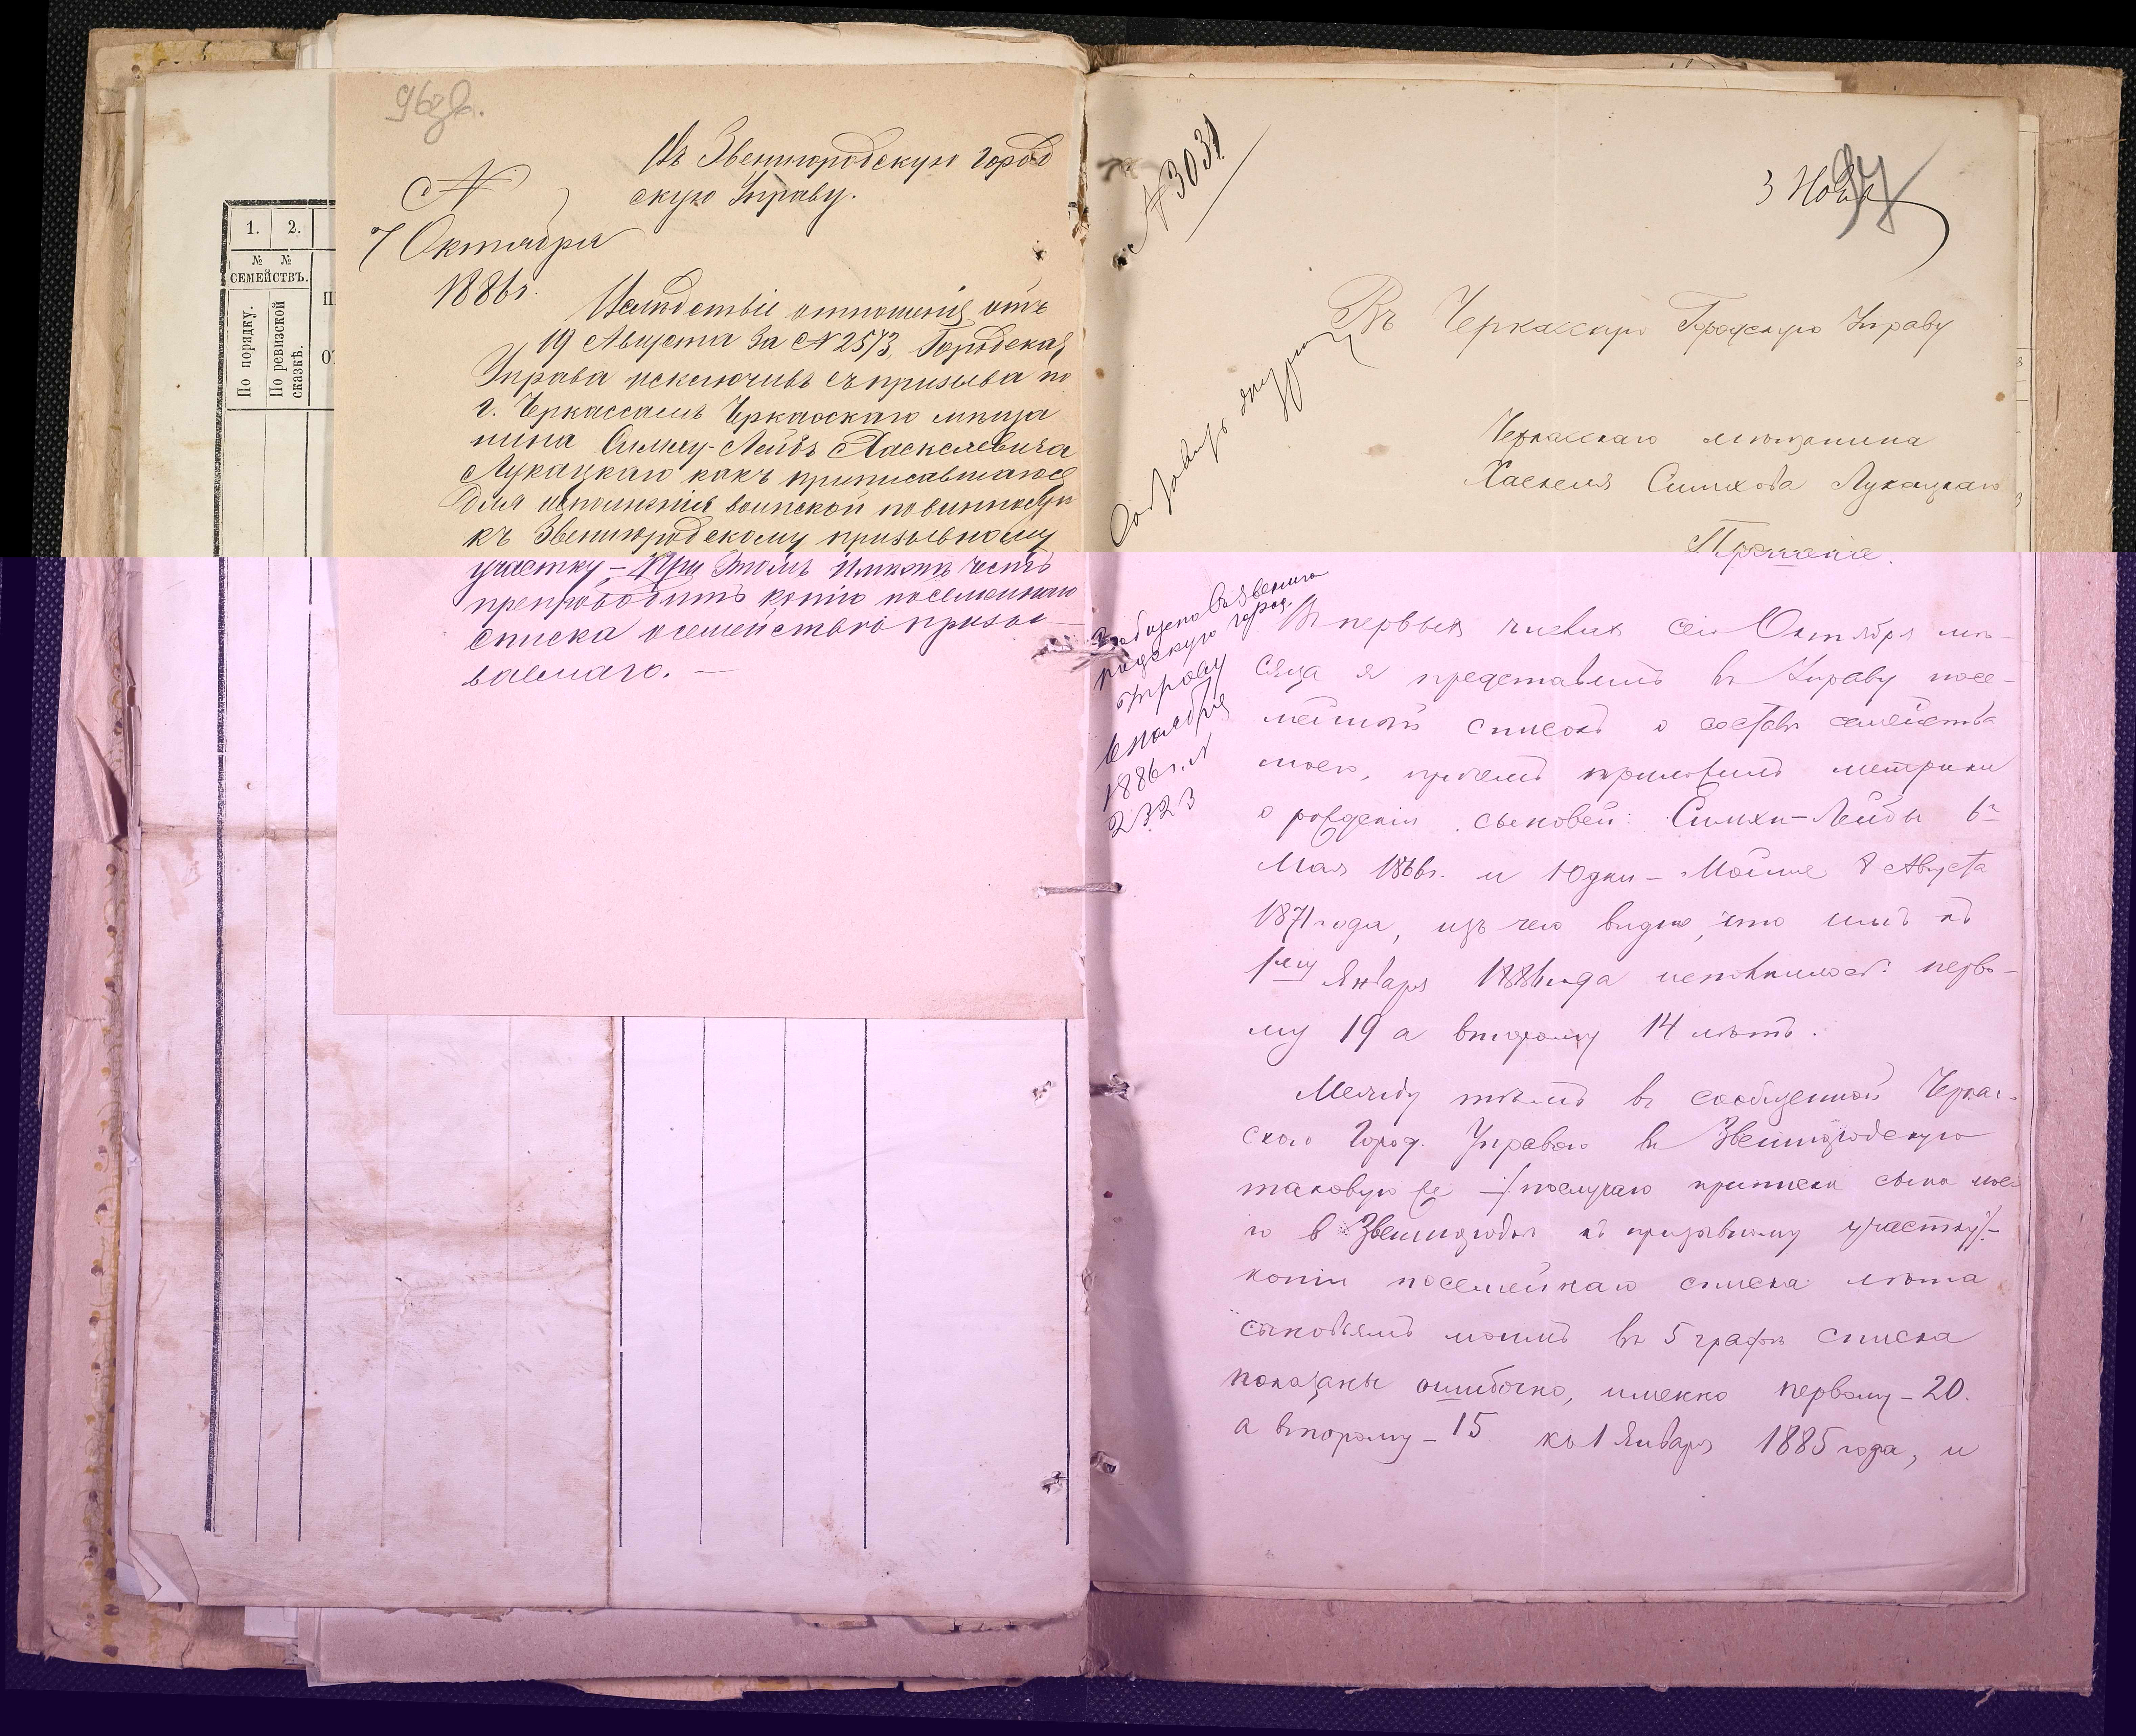 96 об.
Въ Звенигородскую Город
скую Управу.
N
7 Октября
1886 г.
Вслѣдствіе отношенія отъ
19 Августа за N 2573, Городская
Управа исключивъ съ призыва по
г. Черкассамъ Черкасскаго мѣща
нина Симху-Лейбъ Хаскелевича
Лукацкаго какъ приписавшагося
для исполненія воинской повинности
къ Звенигородскому призывному
участку, – При этомъ имѣетъ честь
препроводить копію посемейнаго
списка о семействѣ призы
ваемаго. —
1. 2.
№ №
СЕМЕЙСТВЪ.
По порядку.
По ревизской
сказкѣ.
N 3031
3 Нояб
97
Въ Черкасскую Городскую Управу
Черкасскаго мѣщанина
Хаскеля Симхова Лукацкаго
Прошеніе.
Сообщено въ Звениго
родскую город.
Управу
6 ноября
1886 г. N
2323
Въ первыхъ числахъ сего Октября мѣ-
сяца я представилъ въ Управу посе-
мейный списокъ о составѣ семейства
моего, причемъ приложилъ метрики
о рожденіи сыновей: Симхи-Лейбы 6го
Мая 1866 г. и Юдки-Мойше 8 Августа
1871 года, изъ чего видно, что имъ къ
1му Января 1886 года исполнилось: перво-
му 19 а второму 14 лѣтъ.
Между тѣмъ въ сообщенной Черкас-
скою Город. Управою въ Звенигородскую
таковую же -/по случаю приписки сына мое-
го в Звенигородкѣ къ призывному участку/-
копіи посемейнаго списка лѣта
сыновьямъ моимъ въ 5 графѣ списка
показаны ошибочно, именно первому – 20.
а второму – 15 къ 1 Января 1885 года, и